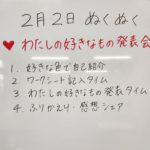 2月2日 ぬくぬく
♥ わたしの好きなもの 発表会
1. 好きな色で自己紹介
2. ワークシート記入タイム
3. わたしの好きなもの 発表タイム
4. ふりかえり・感想シェア